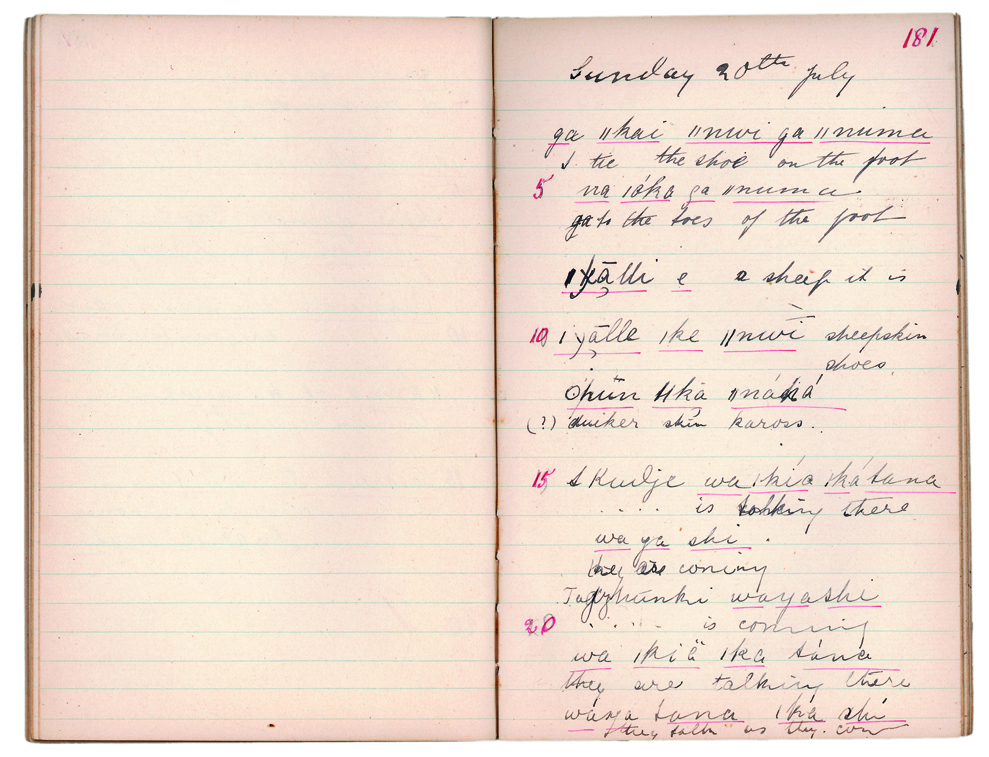 181
Sunday 20th July
ga ǁkai ǁnwi ga ǁnuma
I tie the shoe on the foot
5 na ıóka ga ǁnuma
to the toes of the foot
e a sheep it is
10 ıke ǁnwi sheepskin
shoes.
ǁka
(?) duiker skin kaross..
15 wa ıkía ıkátana
. . . . is talking there
wa ya shi .
they are coming
wayashi
20 . . . . is coming
wa ıkiä ıka tána
they are talking there
tana ıká shi
they talk as they come